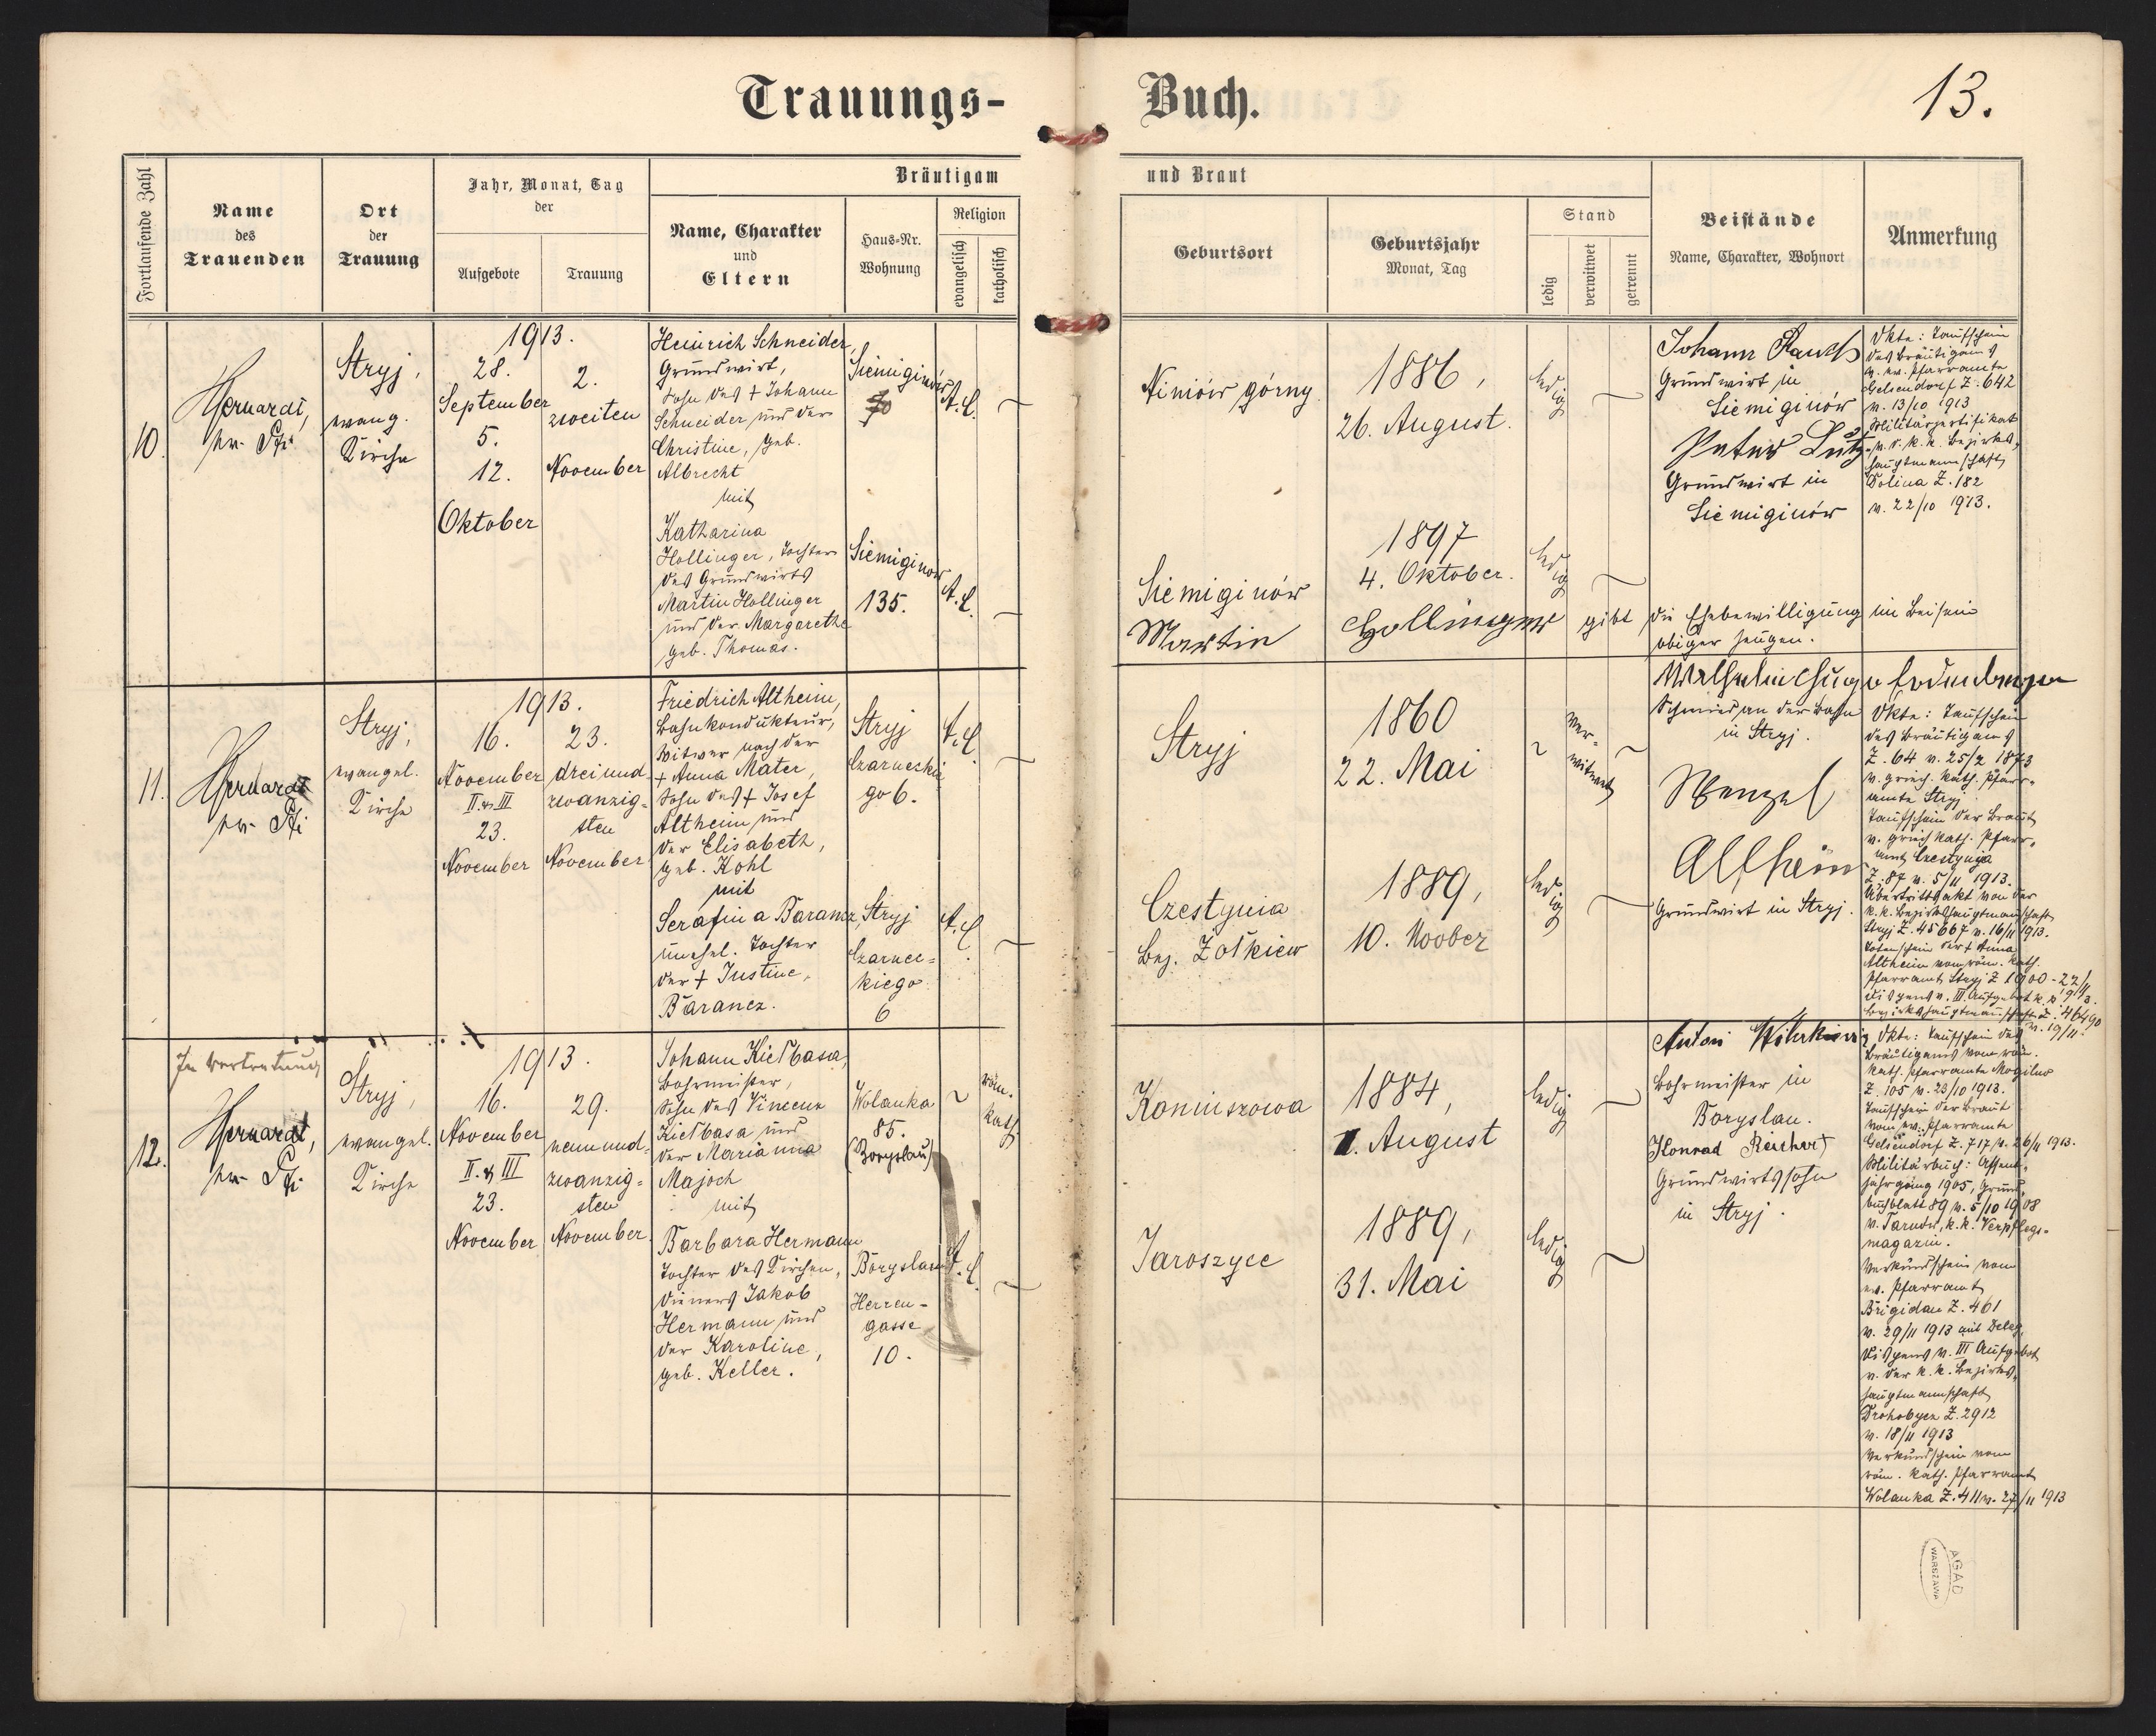 Trauungs-
Buch.
13.
Fortlaufende Zahl
Name
des
Trauenden
Ort
der
Trauung
Jahr, Monat, Tag
der
Aufgebote
Trauung
Bräutigam
Name, Charakter
und
Eltern
Haus-Nr.
Wohnung
Religion
evangelisch
katholisch
und Braut
Geburtsort
Geburtsjahr
Monat, Tag
Stand
ledig
verwitwet
getrennt
Beistände
Name, Charakter, Wohnort
Anmerkung
10.
Stryj,
evang.
Kirche
1913.
28.
September
5.
12.
Oktober
2.
zweiten
November
Heinrich Schneider,
Grundwirt,
Sohn des + Johann
Schneider und der
Christine, geb.
Albrecht
mit
Katharina
Hollinger, Tochter
des Grundwirts
Martin Hollinger
und der Margarethe
geb. Thomas.
Siemiginów
A.C.
Siemiginow
135.
A.C.
Niniów górny
1886,
26. August.
ledig
Siemiginów
1897
4. Oktober.
ledig
Martin Hollinger gibt die Ehebewilligung im Beisein
obiger Zeugen.
Johann Rauch
Grundwirt in
Siemiginów
Peter Lutz
Grundwirt in
Siemiginów
Okte: Taufschein
des Bräutigams
v. ev. Pfarramte
Gelsendorf Z. 642
v. 13/10 1913
Militärzertifikat
v. d. k. k. Bezirks-
hauptmannschaft
Dolina Z. 182
v. 22/10 1913.
11.
Stryj,
evangel.
Kirche
1913.
16.
November
II. u. III
23.
November
23.
dreiund-
zwanzig-
sten
November
Friedrich Altheim,
Bahnkondukteur,
Witwer nach der
+ Anna Mater,
Sohn des + Josef
Altheim und
der Elisabeth,
geb. Kohl
mit
Serafina Barancz,
unehel. Tochter
der + Justine
Barancz.
Stryj
Czarneckie
go 6.
A.C.
Stryj
Czarnec-
kiego
6
A.C.
Stryj
1860
22. Mai
ver-
witwet
Czestynia
Bez. Żołkiew
1889,
10. Novber
ledig
Schmied an der Bahn
in Stryj.
Wenzel
Altheim
Grundwirt in Stryj.
Okte: Taufschein
des Bräutigams
Z. 64 v. 25/2 1873
v. griech. kath. Pfarr-
amte Stryj
Taufschein der Braut
v. griech. kath. Pfarr-
amt Czestynia
Z. 87 v. 5/11 1913.
Übertrittsakt von der
k. k. Bezirkshauptmannschaft
Stryj Z. 45667 v. 16/11 1913.
Totenschein der + Anna
Altheim vom röm. kath.
Pfarramt Stryj Z 1900 - 22/11
1913.
Dispens v. III. Aufgebot k. k.
Bezirkshauptmannschaft Z. 46490
v. 19/11.
12.
In Vertretung
Stryj,
evangel.
Kirche
1913.
16.
November
II. & III
23.
November
29.
neunund-
zwanzig-
sten
November
Johann Kiełbasa,
Bohrmeister,
Sohn des Vincenz
Kiełbasa und
der Marianna
Majoch
mit
Barbara Hermann
Tochter des Kirchen-
dieners Jakob
Hermann und
der Karoline,
geb. Keller.
Wolanka
85.
(Boryslau)
röm.
kath
Boryslau
Herren-
gasse
10.
A.C.
Koniuszowa
1884,
1. August
ledig
Jaroszyce
1889,
31. Mai
ledig
Bohrmeister in
Boryslau.
Konrad Reichert
Grundwirtssohn
in Stryj.
Okte: Taufschein des
Bräutigams vom röm.
kath. Pfarramte Mogilno
Z. 105 v. 23/10 1913.
Taufschein der Braut
vom ev. Pfarramte
Gelsendorf Z. 717 v. 26/11 1913.
Militärbuch: Assent-
jahrgang 1905, Grund-
buchblatt 89 v. 5/10 1908
v. Tarnów, k. k. Verpflegs-
magazin.
Verkündschein vom
ev. Pfarramt
Brigidau Z. 461
v. 29/11 1913 mit Deleg.
Dispens v. III Aufgebot
v. der k. k. Bezirks-
hauptmannschaft
Drohobycz Z. 2912
v. 18/11 1913
Verkündschein vom
röm. kath. Pfarramt
Wolanka Z. 411 v. 27/11 1913
AGAD
WARSZAWA